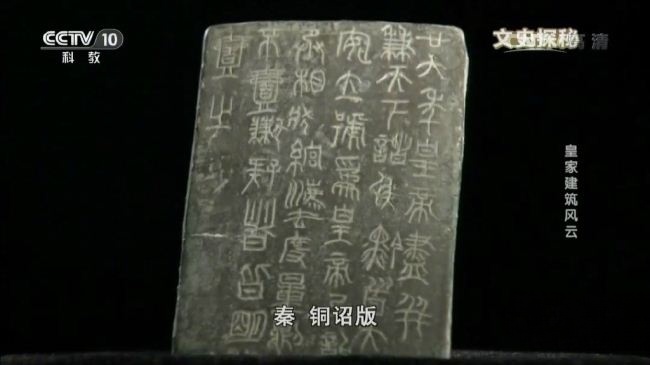 CCTV 10
科教
文史探秘
高清
皇家建筑风云
廿六年皇帝盡并
兼天下諸矦黔首大
安立號爲皇帝乃詔
丞相狀綰灋度量則
不壹歉疑者皆明
壹之
秦 铜诏版